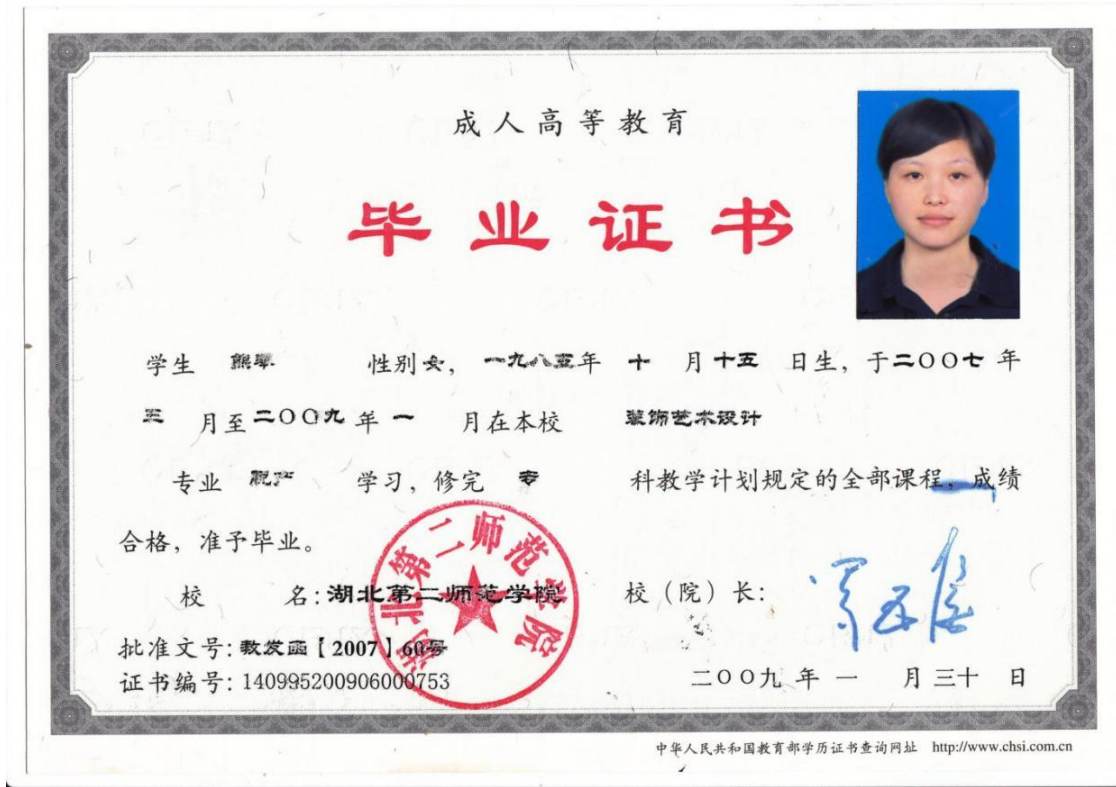 成人高等教育
毕业证书
学生 熊琴 性别女, 一九八五年 十 月十五 日生, 于二〇〇七 年
三 月至二〇〇九 年 一 月在本校 装饰艺术设计
专业 脱产 学习, 修完 专 科教学计划规定的全部课程, 成绩
合格, 准予毕业。
校 名: 湖北第二师范学院 校（院）长:
湖北第二师范学院
批准文号: 教发函【2007】60号
证书编号: 140995200906000753
二〇〇九 年 一 月 三十 日
中华人民共和国教育部学历证书查询网址 http://www.chsi.com.cn